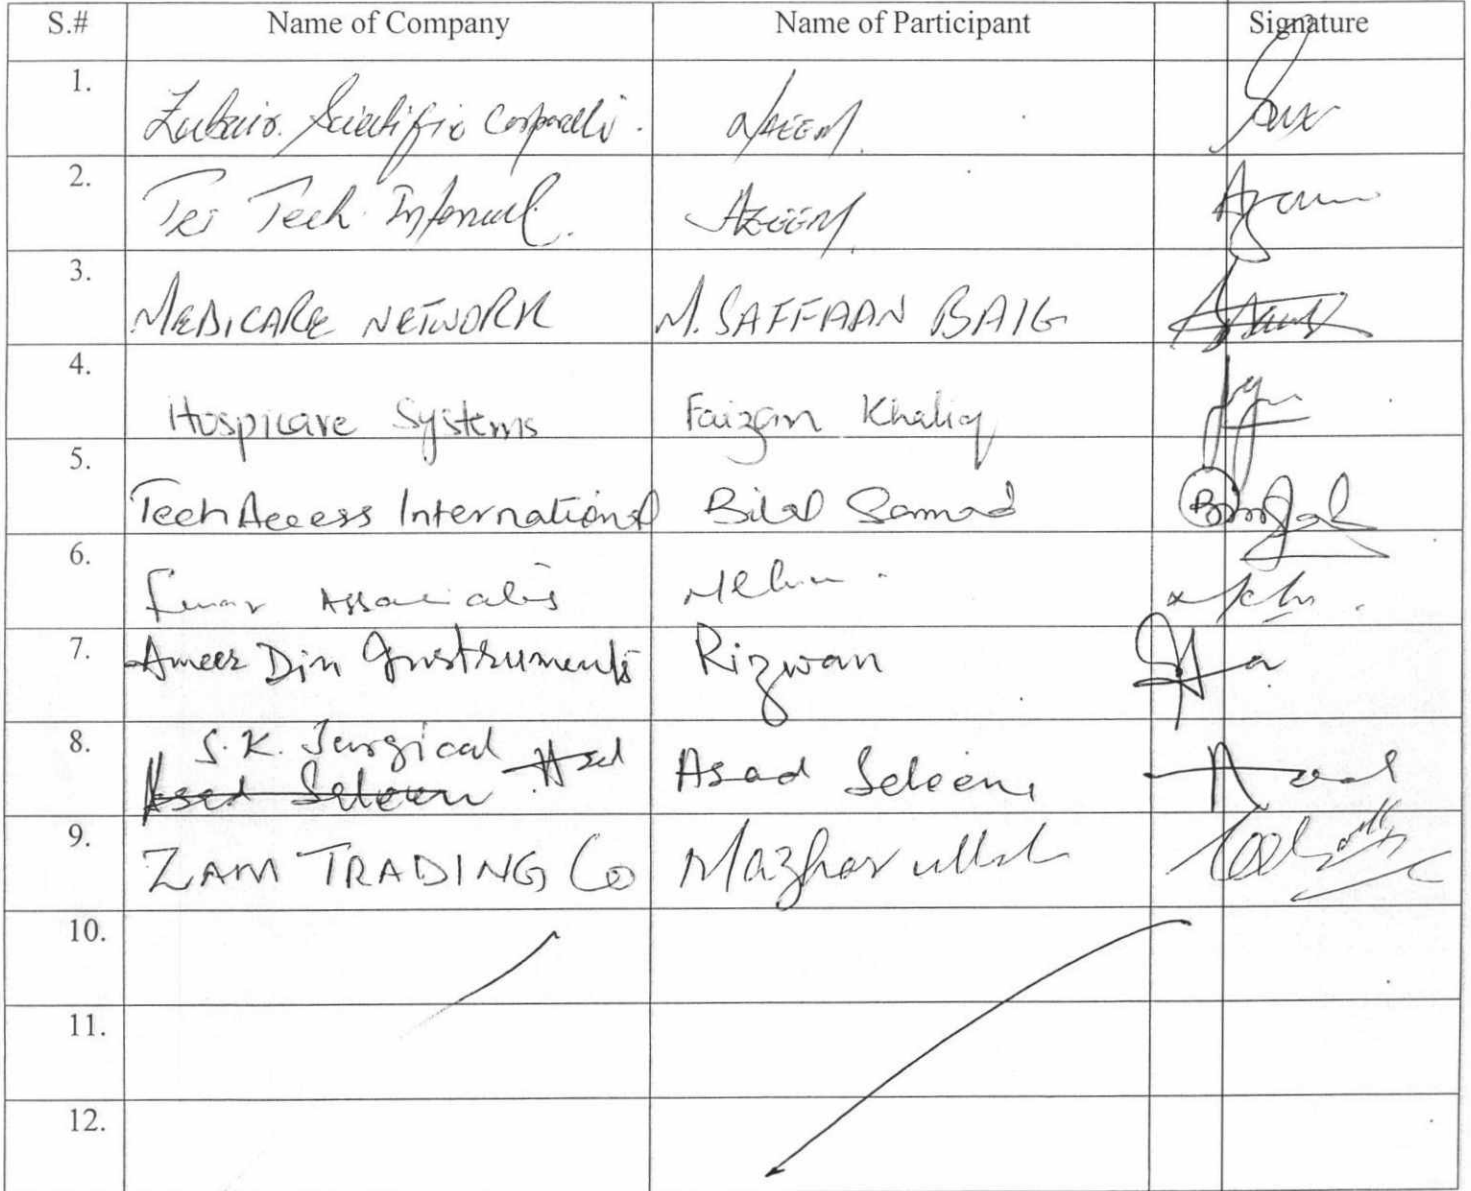 S.# Name of Company Name of Participant Signature
1. Zubair Scientific NAEEM
2. Tech AZEEM
3. MEDICARE NETWORK M. SAFFAAN BAIG
4. Hospicare Systems Faizan Khaliq
5. TechAccess International Bilal Samad
6. Associates
7. Ameer Din Instruments Rizwan
8. S.K. Surgical Asad Saleem
Asad Saleem Asad
9. ZAM TRADING Co Mazhar ullah
10.
11.
12.